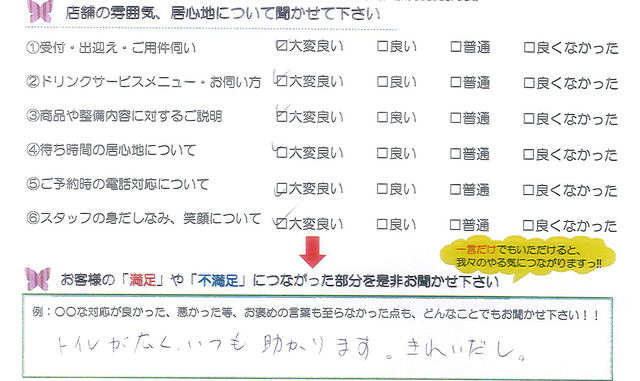 店舗の雰囲気、居心地について聞かせて下さい
①受付・出迎え・ご用件伺い ☑大変良い □良い □普通 □良くなかった
②ドリンクサービスメニュー・お伺い方 ☑大変良い □良い □普通 □良くなかった
③商品や整備内容に対するご説明 ☑大変良い □良い □普通 □良くなかった
④待ち時間の居心地について ☑大変良い □良い □普通 □良くなかった
⑤ご予約時の電話対応について ☑大変良い □良い □普通 □良くなかった
⑥スタッフの身だしなみ、笑顔について ☑大変良い □良い □普通 □良くなかった
一言だけでもいただけると、
我々のやる気につながりますっ!!
お客様の「満足」や「不満足」につながった部分を是非お聞かせ下さい
例：〇〇な対応が良かった、悪かった等、お褒めの言葉も至らなかった点も、どんなことでもお聞かせ下さい！！
トイレが広く、いつも助かります。きれいだし。